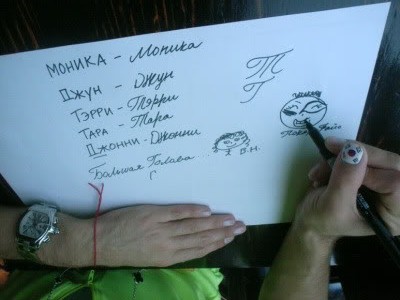 МОНИКА - Моника
ДЖУН - Джун
ТЭРРИ - Тэрри
ТАРА - Тара
ДЖОННИ - Джонни
Большая Голова
Г
Т
Г